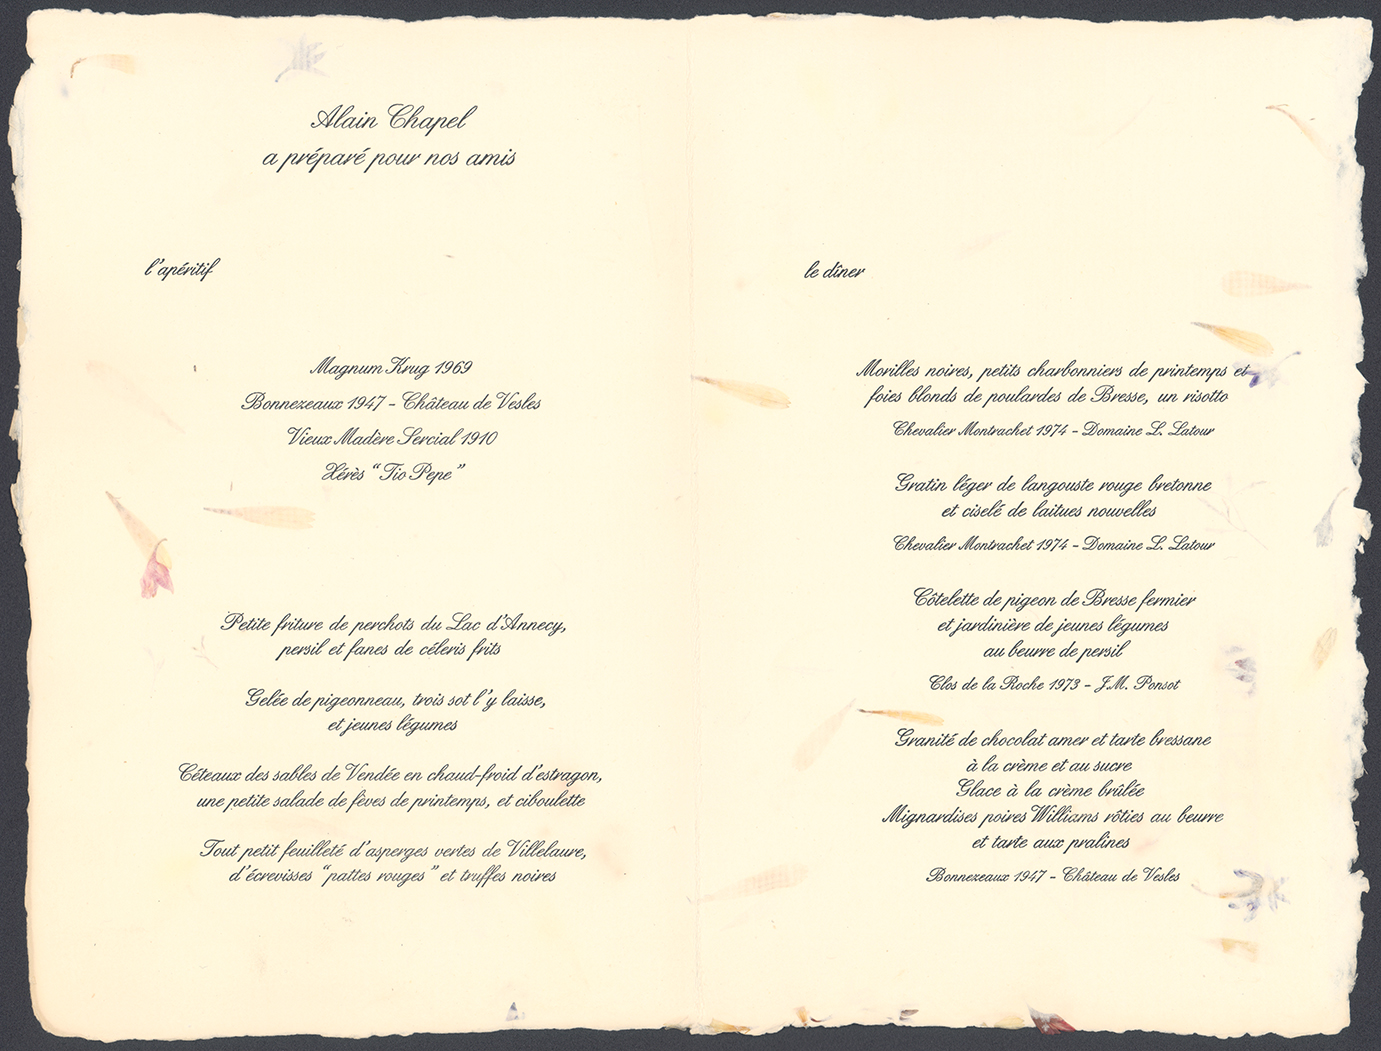 Alain Chapel
a préparé pour nos amis
l'apéritif
Magnum Krug 1969
Bonnezeaux 1947 - Château de Vesles
Vieux Madère Sercial 1910
Xérès "Tio Pepe"
Petite friture de perchots du Lac d'Annecy,
persil et fanes de céleris frits
Gelée de pigeonneau, trois sot l'y laisse,
et jeunes légumes
Céteaux des sables de Vendée en chaud-froid d'estragon,
une petite salade de fèves de printemps, et ciboulette
Tout petit feuilleté d'asperges vertes de Villelaure,
d'écrevisses "pattes rouges" et truffes noires
le dîner
Morilles noires, petits charbonniers de printemps et
foies blonds de poulardes de Bresse, un risotto
Chevalier Montrachet 1974 - Domaine L. Latour
Gratin léger de langouste rouge bretonne
et ciselé de laitues nouvelles
Chevalier Montrachet 1974 - Domaine L. Latour
Côtelette de pigeon de Bresse fermier
et jardinière de jeunes légumes
au beurre de persil
Clos de la Roche 1973 - J.M. Ponsot
Granité de chocolat amer et tarte bressane
à la crème et au sucre
Glace à la crème brûlée
Mignardises poires Williams rôties au beurre
et tarte aux pralines
Bonnezeaux 1947 - Château de Vesles